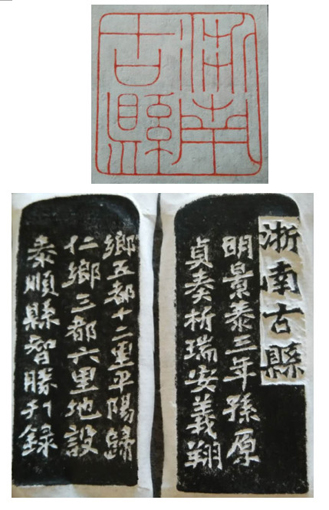 浙南
古縣
浙南古縣
明景泰三年孫原
貞奏析瑞安義翔
鄉五都十二里平陽歸
仁鄉三都六里地設
泰順縣智勝刊録